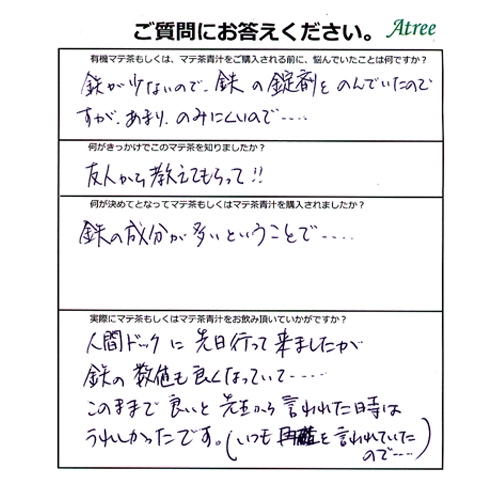 ご質問にお答えください。 Atree
有機マテ茶もしくは、マテ茶青汁をご購入される前に、悩んでいたことは何ですか？
鉄が少ないので、鉄の錠剤をのんでいたので
すが、あまり、のみにくいので‥‥
何がきっかけでこのマテ茶を知りましたか？
友人から教えてもらって!!
何が決めてとなってマテ茶もしくはマテ茶青汁を購入されましたか？
鉄の成分が多いということで‥‥
実際にマテ茶もしくはマテ茶青汁をお飲み頂いていかがですか？
人間ドックに先日行って来ましたが
鉄の数値も良くなっていて‥‥
このままで良いと先生から言われた時は
うれしかったです。(いつも再検を言われていた
ので‥‥)